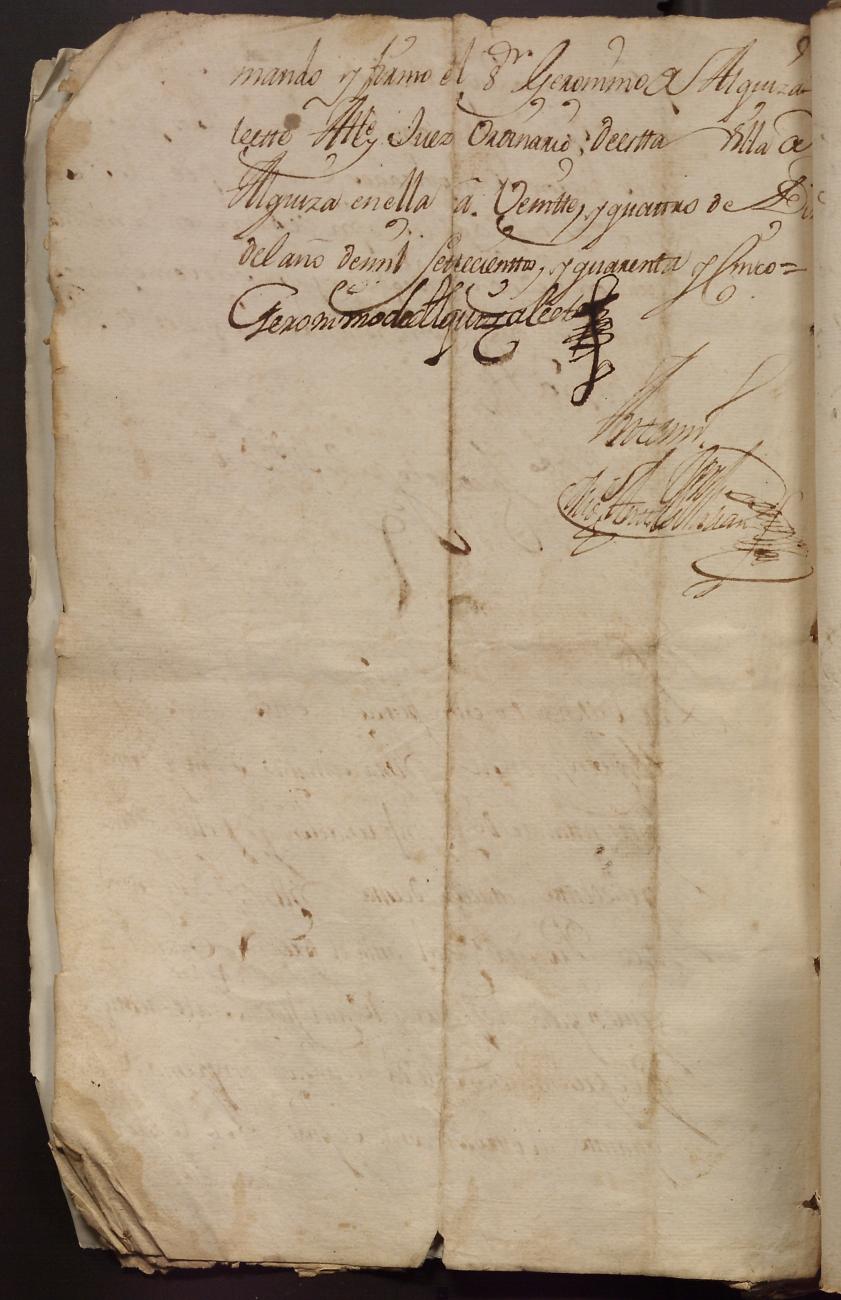 mando y firmo el Sr Geronimo de Alquiza
leette Alle y Juez Ordinario, deestta villa de
Alquiza enella â. Veintte, y quattro de
del año demil settecientto, y quarenta y Cinco =
Geronimo de Alquizaleete
Antemi